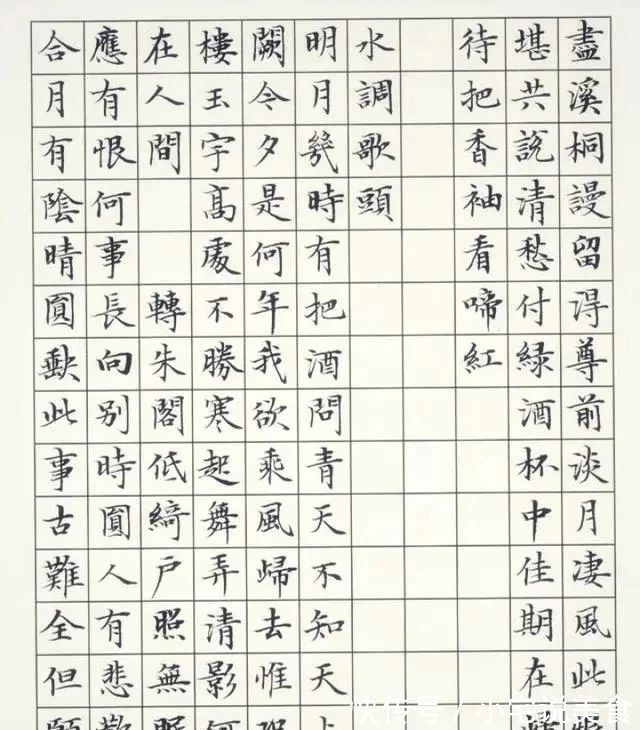 盡溪桐謾留得尊前淡月凄風此
堪共說清愁付緑酒杯中佳期在
待把香袖看啼紅
水調歌頭
明月幾時有把酒問青天不知天上
闕今夕是何年我欲乘風歸去惟恐
樓玉宇高處不勝寒起舞弄清影何
在人間 轉朱閣低綺戶照無眠
應有恨何事長向別時圓人有悲歡
合月有陰晴圓缺此事古難全但願
快传号